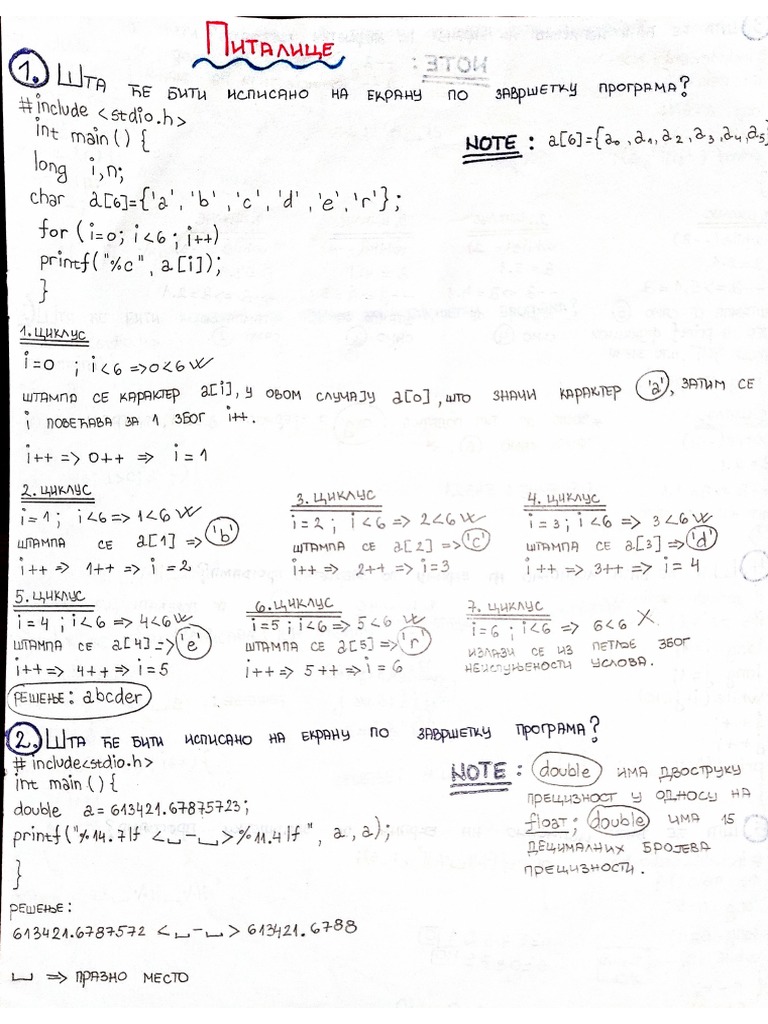 Питалице
1. Шта ће бити исписано на екрану по завршетку програма?
#include <stdio.h>
int main() {
NOTE: a[6]={a₀,a₁,a₂,a₃,a₄,a₅
long i,n;
char a[6]={'a','b','c','d','e','r'};
for (i=0; i<6; i++)
printf("%c", a[i]);
}
1. циклус
i=0 ; i<6 => 0<6 W
штампа се карактер a[i], у овом случају a[0], што значи карактер 'a', затим се
i повећава за 1 због i++.
i++ => 0++ => i=1
2. циклус
i=1; i<6 => 1<6 W
штампа се a[1] => 'b'
i++ => 1++ => i=2
3. циклус
i=2 ; i<6 => 2<6 W
штампа се a[2] => 'c'
i++ => 2++ => i=3
4. циклус
i=3; i<6 => 3<6 W
штампа се a[3] => 'd'
i++ => 3++ => i=4
5. циклус
i=4 ; i<6 => 4<6 W
штампа се a[4] => 'e'
i++ => 4++ => i=5
6. циклус
i=5 ; i<6 => 5<6 W
штампа се a[5] => 'r'
i++ => 5++ => i=6
7. циклус
i=6 ; i<6 => 6<6 X
излази се из петље због
неиспуњености услова.
решење: abcder
2. Шта ће бити исписано на екрану по завршетку програма?
#include<stdio.h>
int main() {
double a=613421.67875723;
printf("%14.7lf <␣-␣>%11.4lf", a, a);
}
NOTE: double има двоструку
прецизност у односу на
float. double има 15
децималних бројева
прецизности.
решење:
613421.6787572 <␣-␣> 613421.6788
␣ => празно место